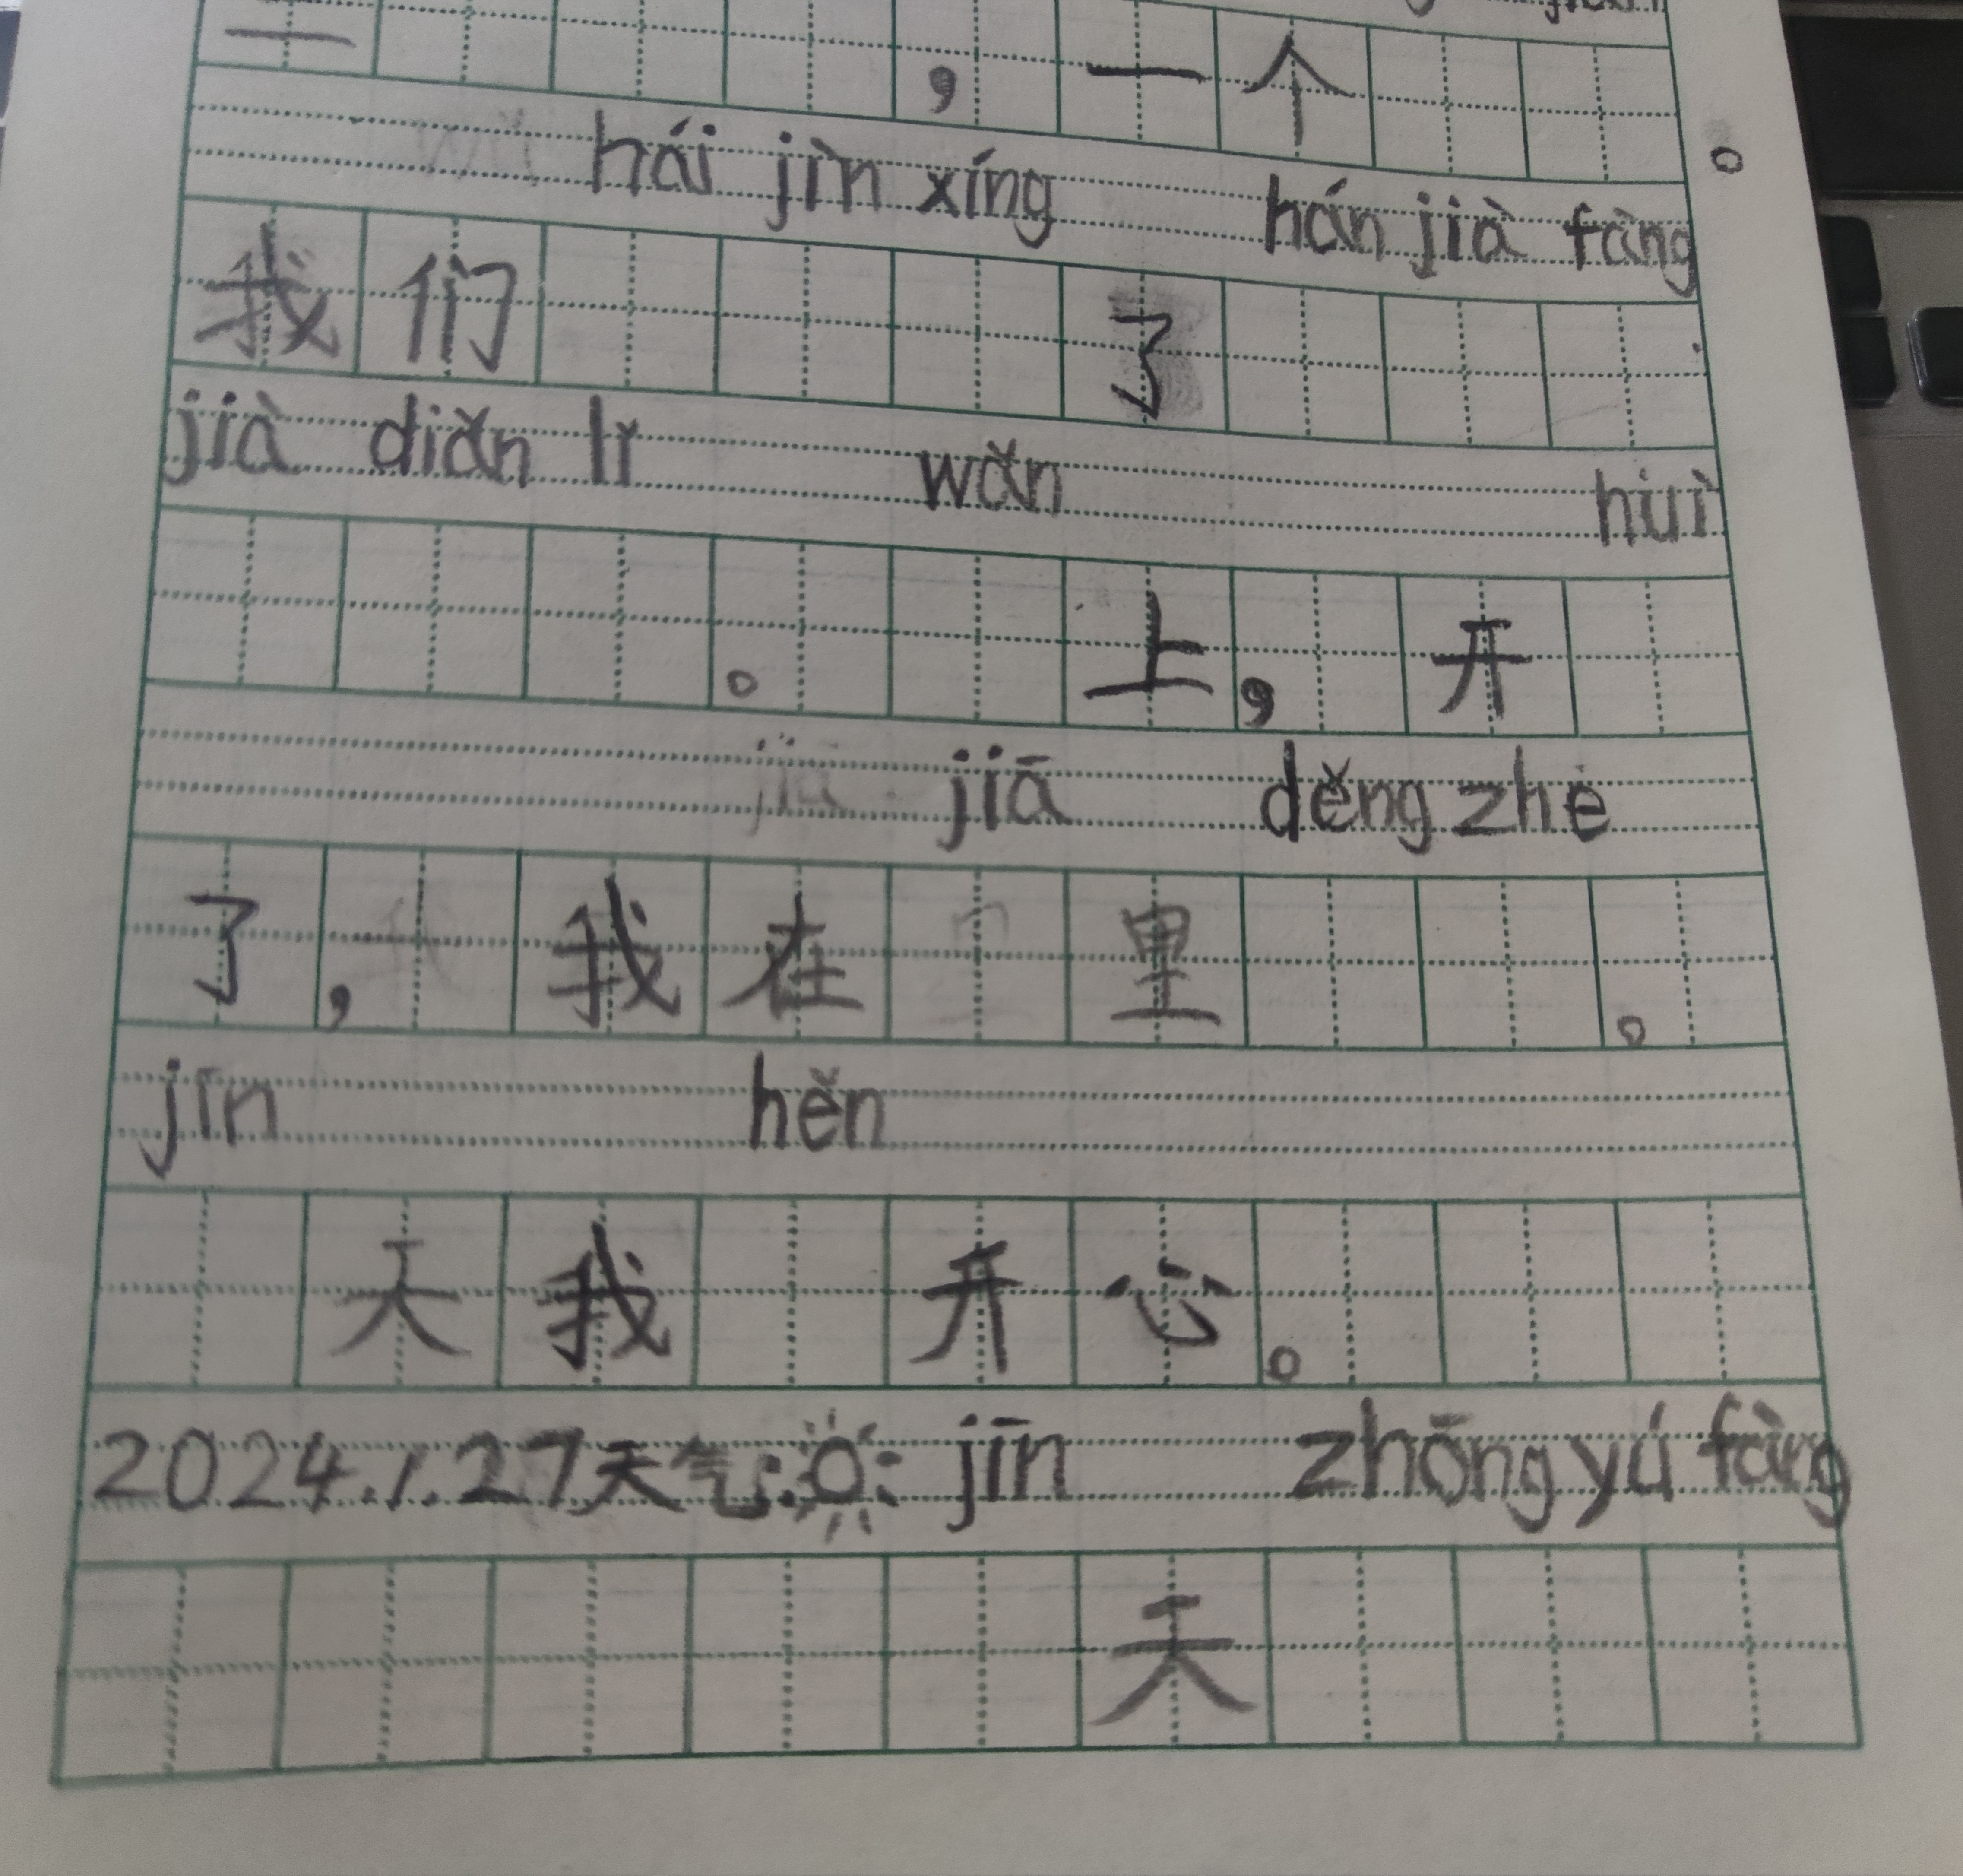 ，一个
hái jìn xíng hán jià fàng
。
我们了
jià diǎn lǐ wǎn huì
。上，开
jiā děng zhe
了，我在里。
jīn hěn
天我开心。
2024.1.27天气: jīn zhōng yú fàng
天